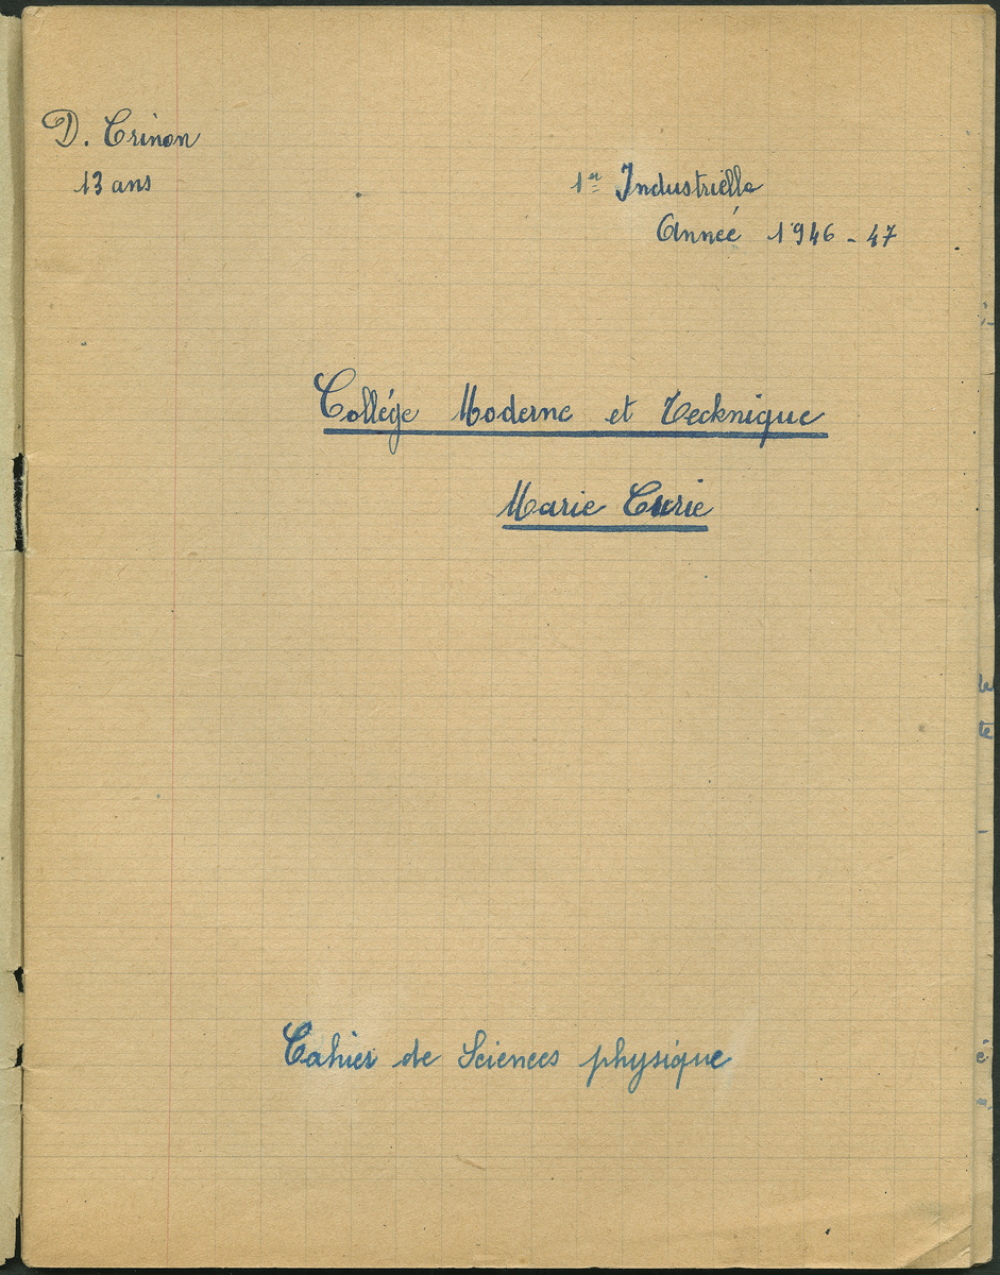 D. Crinon
13 ans
1ère Industrielle
Année 1946 - 47
Collége Moderne et Technique
Marie Curie
Cahier de Sciences physique